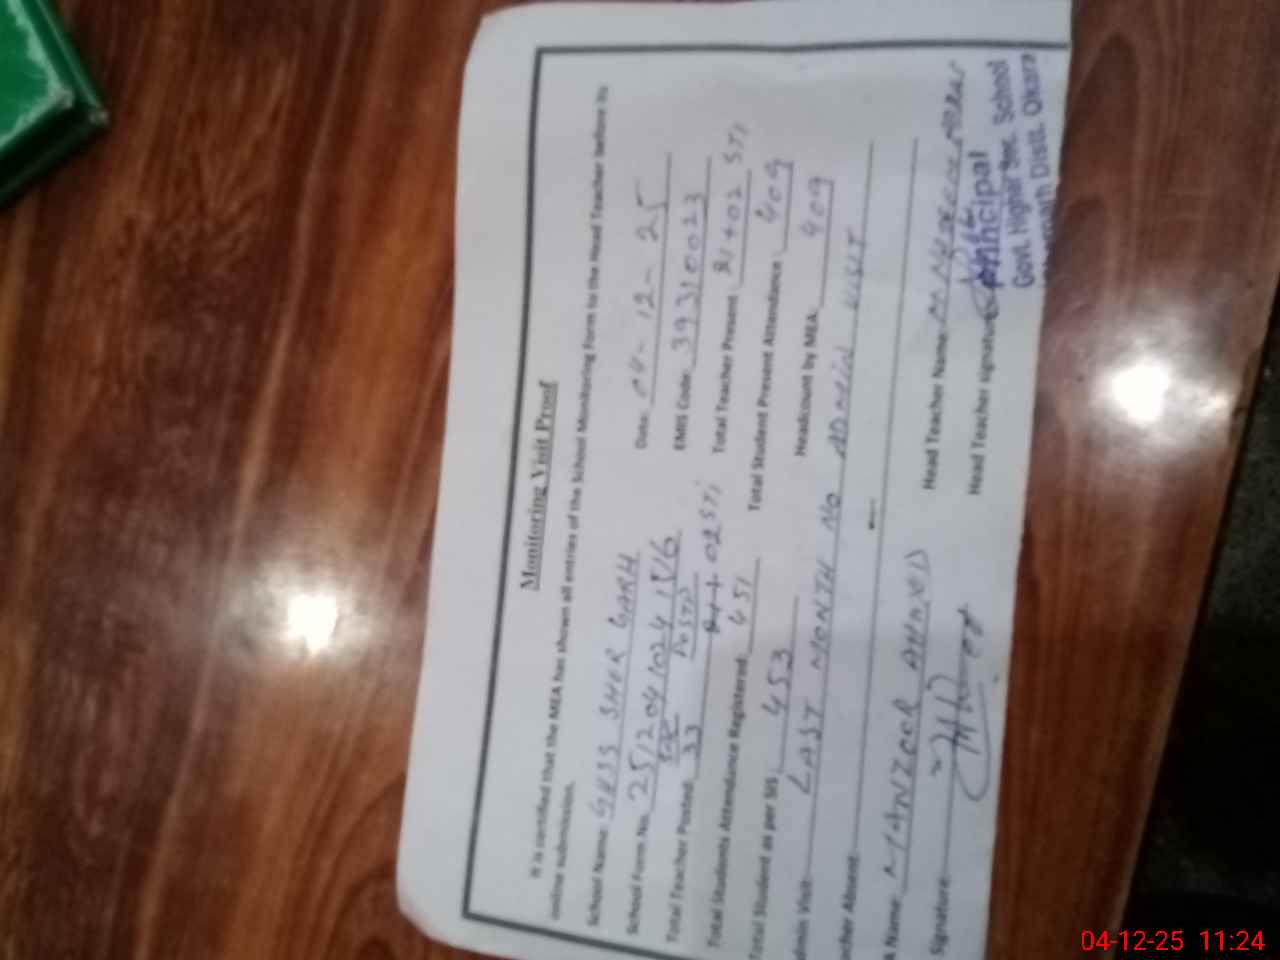 Monitoring Visit Proof
It is certified that the MEA has shown all entries of the School Monitoring Form to the Head Teacher before its
online submission.
School Name: GHSS SHER GARH Date: 04-12-25
School Form No. 251204102415/6 EMIS Code: 39310023
Total Teacher Posted: 33 02 STI Total Teacher Present: +02 STI
Total Students Attendance Registered: 451 Total Student Present Attendance: 409
Total Student as per SIS: 453 Headcount by MEA: 409
dmin Visit: LAST MONTH NO ADMIN VISIT
acher Absent: -
A Name: MANZOOR AHMED Head Teacher Name:
Signature: Head Teacher signature
Principal
Govt. Higher Sec. School
Distt. Okara
04-12-25 11:24